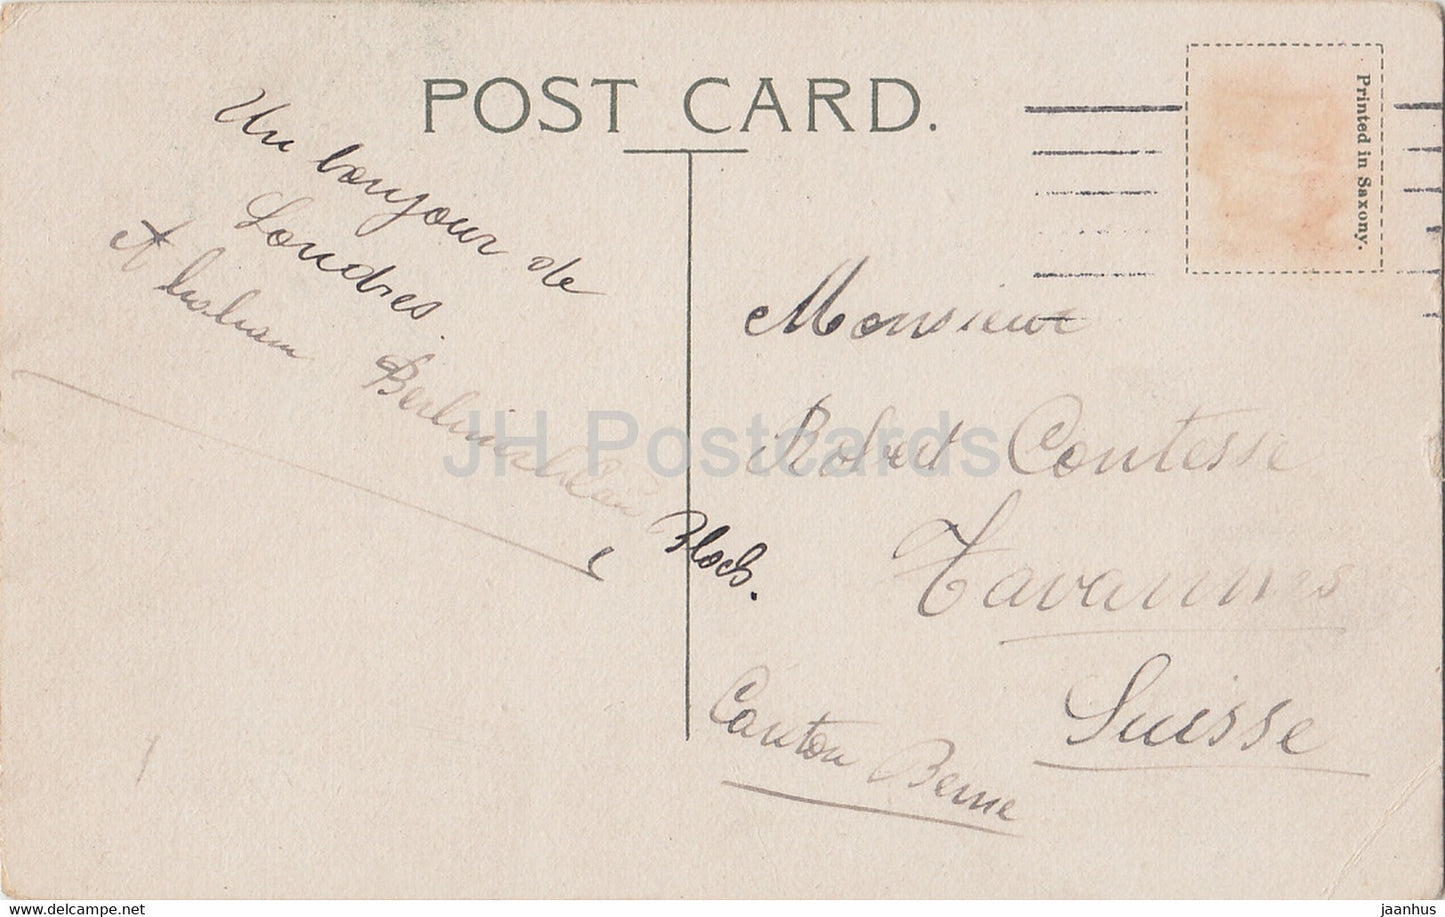 POST CARD.
Printed in Saxony.
Un bonjour de
Londres
Bloch.
Monsieur
Robert Contesse
Tavannes
Suisse
Canton Berne
JH Postcards
www.delcampe.net
jaanhus